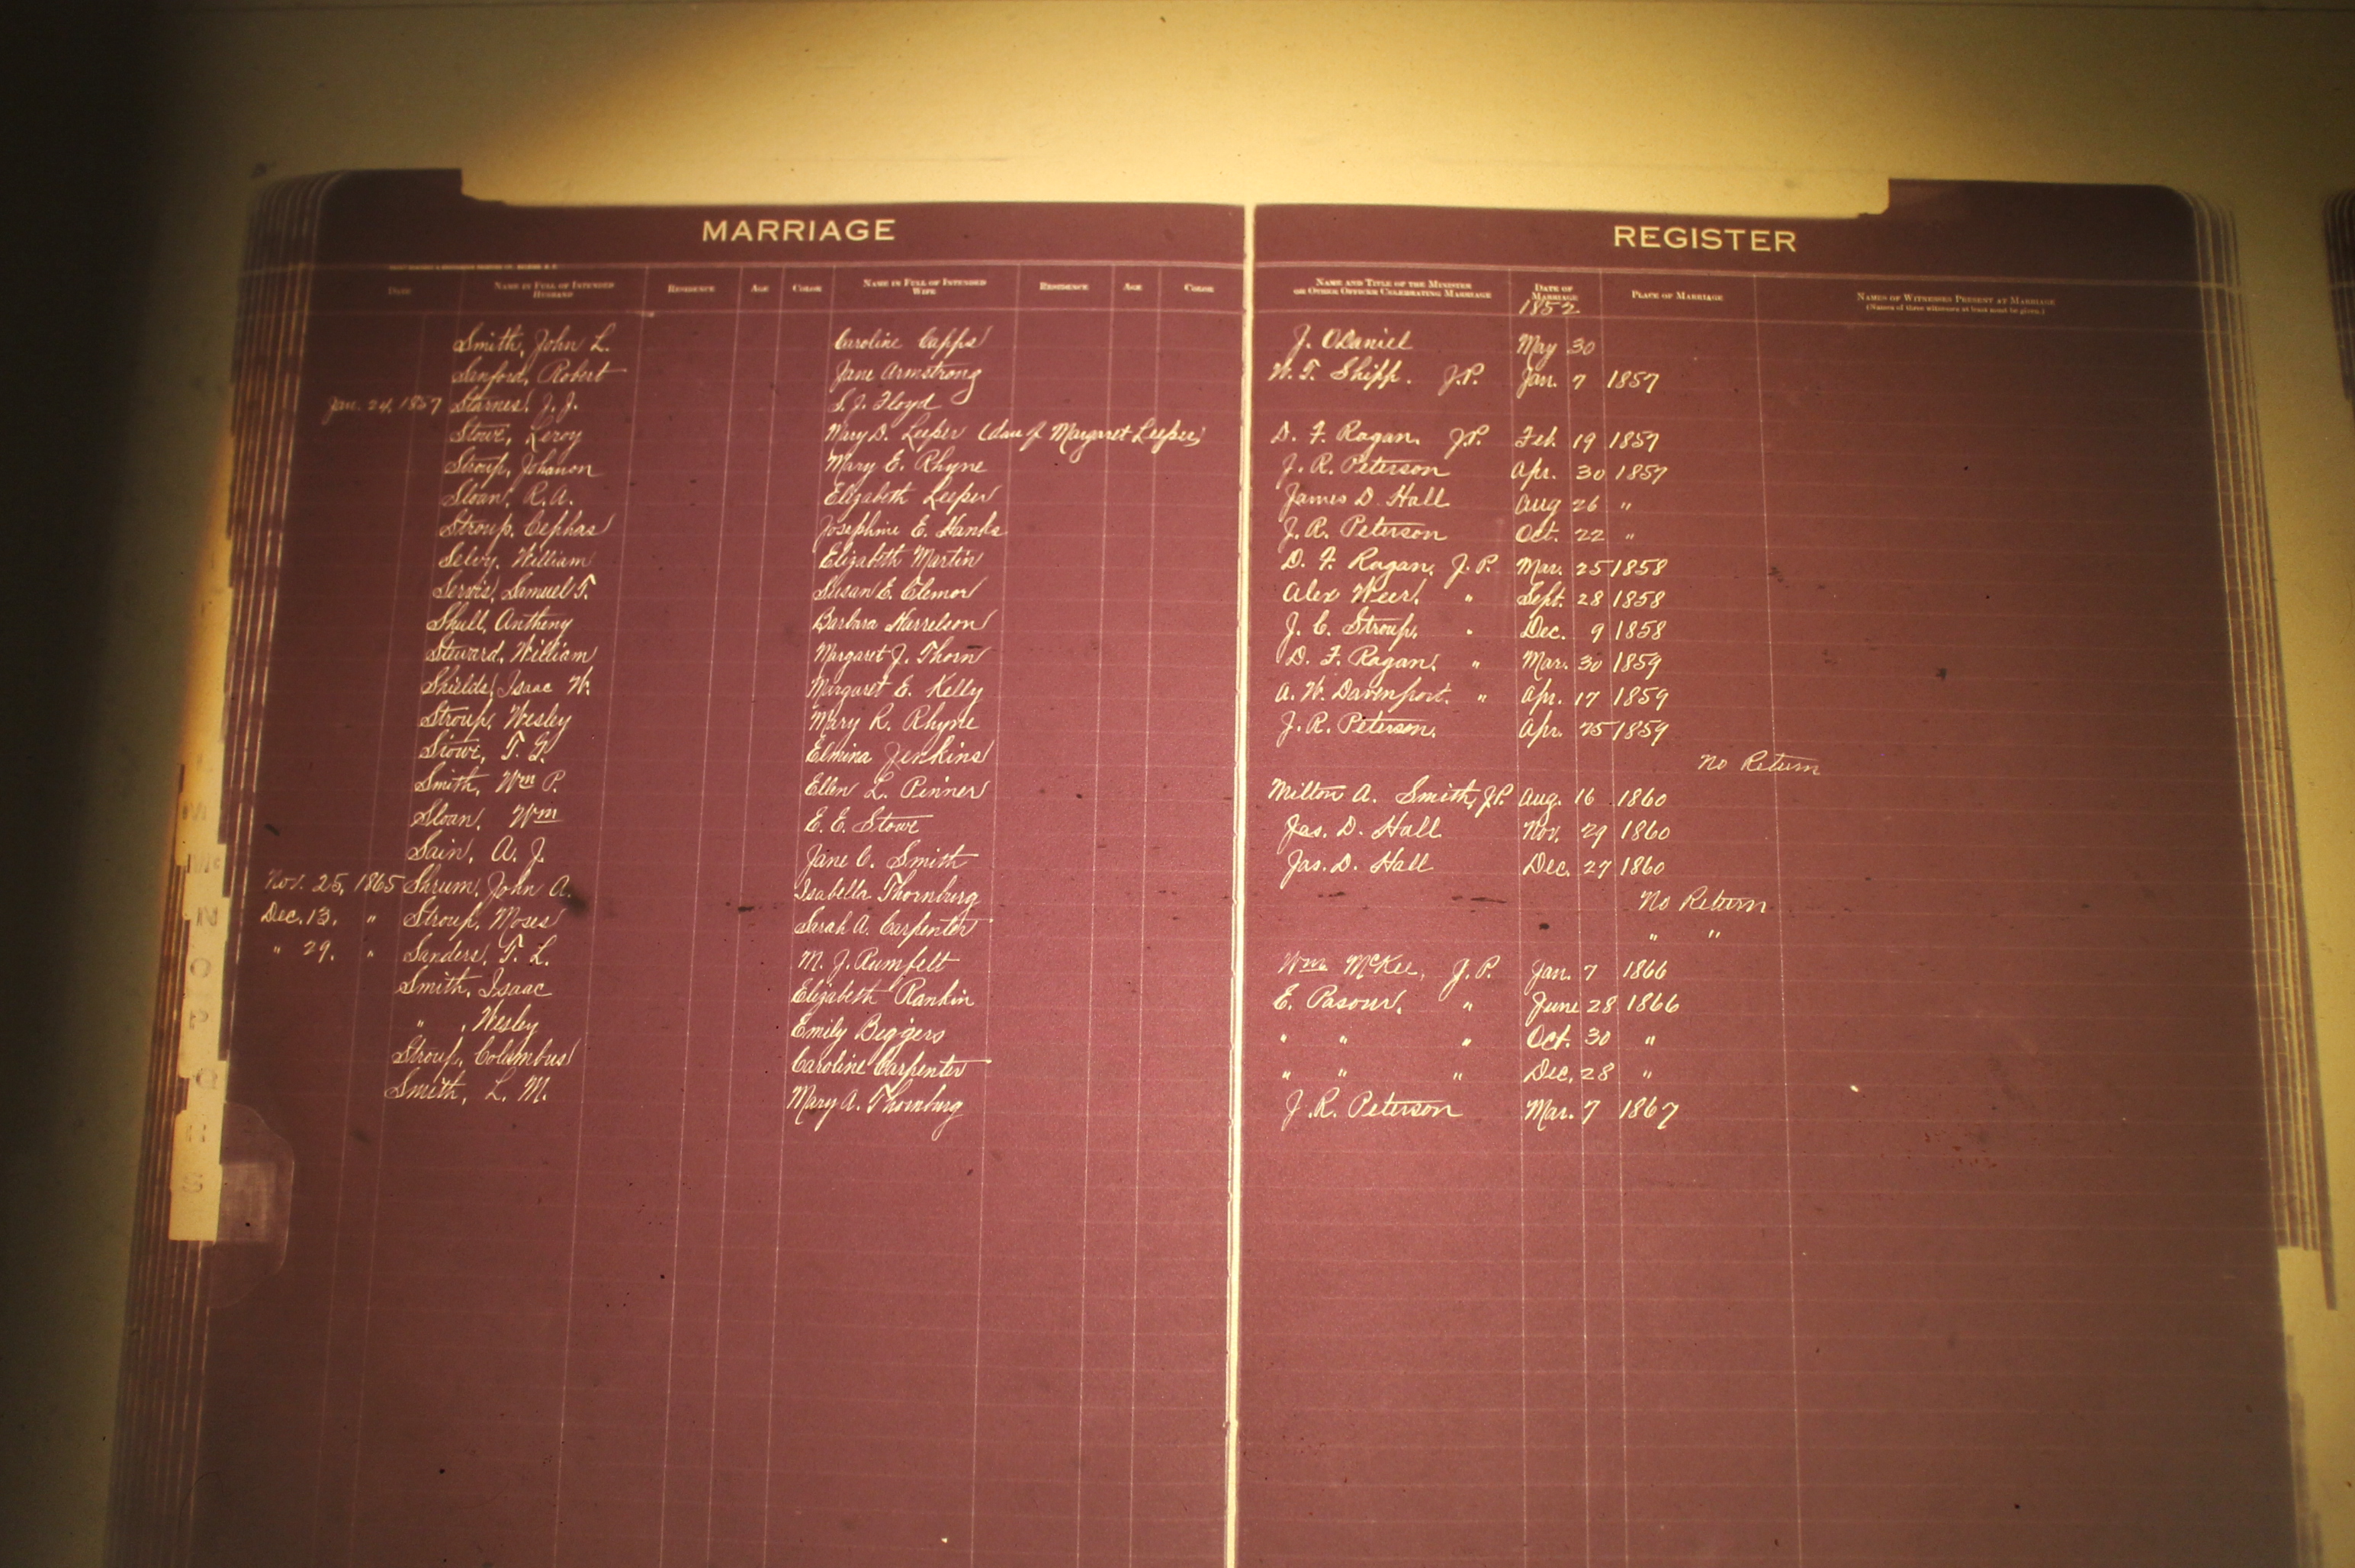 MARRIAGE REGISTER
Date Name in Full of Intended Husband Residence Age Color Name in Full of Intended Wife Residence Age Color Name and Title of the Minister or Other Officer Celebrating Marriage Date of Marriage Place of Marriage Names of Witnesses Present at Marriage (Names of three witnesses at least must be given.)
1852
Smith, John L. Caroline Capps J. ODaniel May 30
Senford, Robert Jane Armstrong W. T. Shipp. J.P. Jan. 7 1857
Jan. 24, 1857 Starnes, J. J. S. J. Floyd
Stowe, Leroy Mary D. Leeper (dau of Margaret Leeper) D. F. Ragan. J.P. Feb. 19 1857
Stroup, Johanon Mary E. Rhyne J. R. Peterson Apr. 30 1857
Sloan, R. A. Elizabeth Leeper James D. Hall Aug 26 "
Stroup, Cephas Josephine E. Hanks J. R. Peterson Oct. 22 "
Selvy, William Elizabeth Martin D. F. Ragan, J. P. Mar. 25 1858
Servis, Samuel T. Susan E. Clemor Alex Weer. " Sept. 28 1858
Shull, Antheny Barbara Harrelson J. C. Stroup. " Dec. 9 1858
Steward, William Margaret J. Thorn D. F. Ragan. " Mar. 30 1859
Shields, Isaac W. Margaret E. Kelly A. W. Davenport. " Apr. 17 1859
Stroup, Wesley Mary R. Rhyne J. R. Peterson. Apr. 25 1859
Stowe, T. G. Elmina Jenkins No Return
Smith, Wm P. Ellen L. Pinner Milton A. Smith, J.P. Aug. 16 1860
Sloan, Wm E. E. Stowe Jas. D. Hall Nov. 29 1860
Sain, A. J. Jane C. Smith Jas. D. Hall Dec. 27 1860
Nov. 25, 1865 Shrum, John A. Isabella Thornburg No Return
Dec. 13, " Stroup, Moses Sarah A. Carpenter " "
" 29. " Sanders, T. L. M. J. Rumfelt Wm McKee, J. P. Jan. 7 1866
Smith, Isaac Elizabeth Rankin E. Pasour. " June 28 1866
" , Wesley Emily Biggers " " " Oct. 30 "
Stroup, Columbus Caroline Carpenter " " " Dec. 28 "
Smith, L. M. Mary A. Thornburg J. R. Peterson Mar. 7 1867